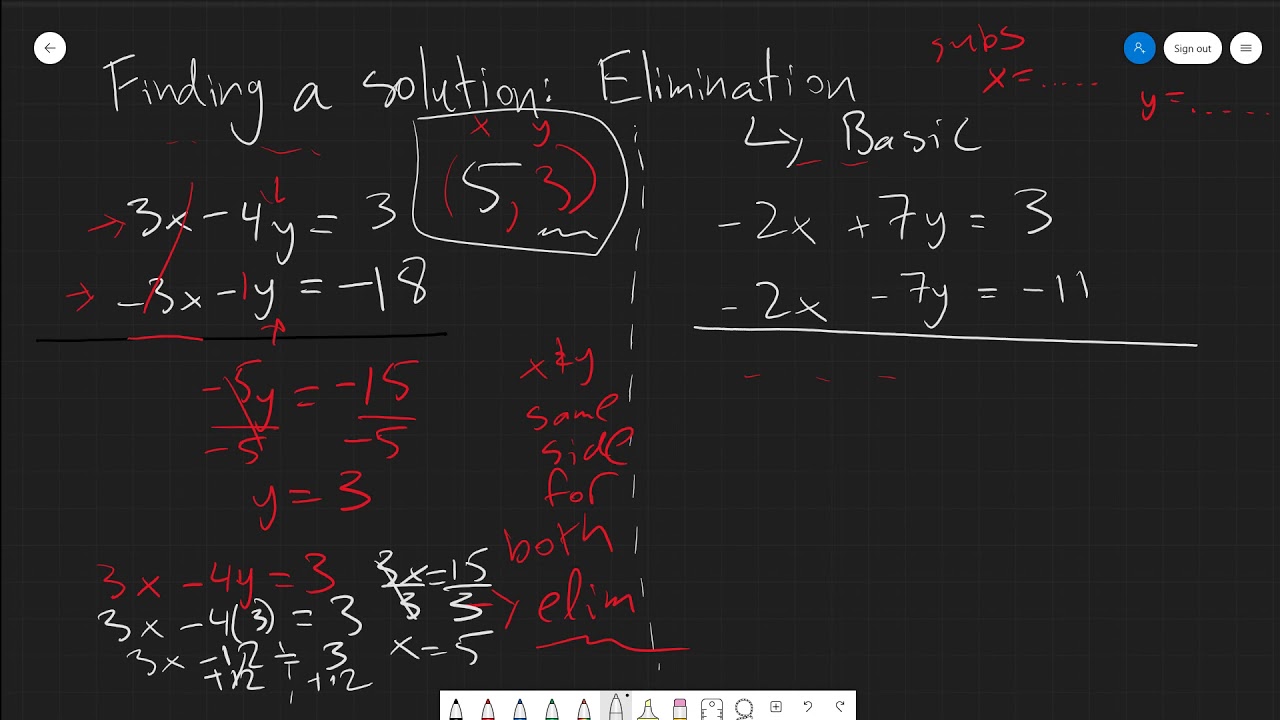 Finding a solution: Elimination
subs
x = .....
y = ......
Sign out
↳ Basic
x y
(5, 3)
→ 3x - 4y = 3
→ -3x - 1y = -18
-5y = -15
-5 -5
y = 3
3x - 4y = 3
3x - 4(3) = 3
3x - 12 = 3
+12 +12
3x = 15
3 3
x = 5
x & y
same
side
for
both
→ elim
-2x + 7y = 3
-2x - 7y = -11